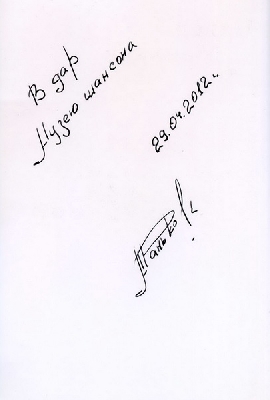 В дар
Музею шансона
29.04.2012г.